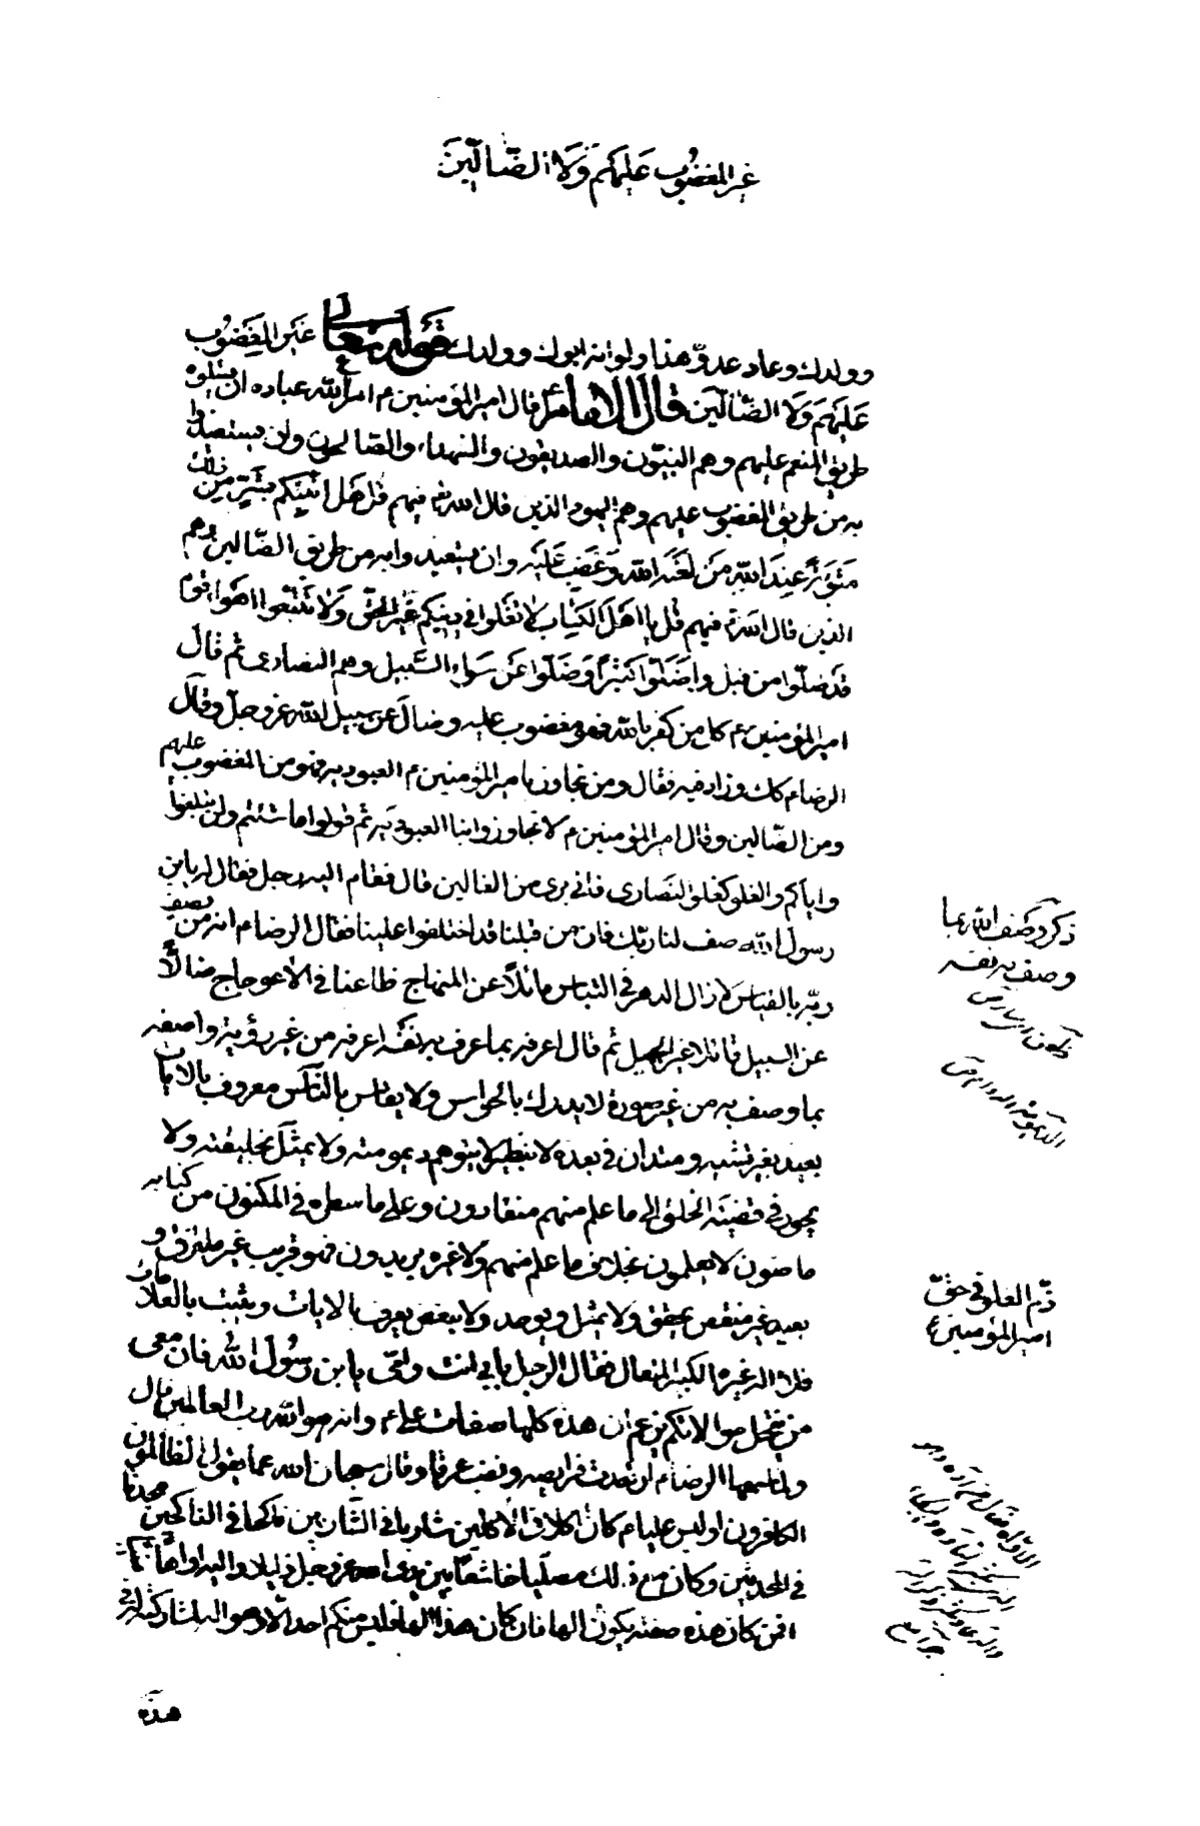 غير المغضوب عليهم ولا الضالين
وولدك وعاد عدو هذا ولو انه ابوك وولدك قوله تعالى غير المغضوب
عليهم ولا الضالين قال الامام ع قال امير المؤمنين ع امر الله عباده ان يسئلوه
طريق المنعم عليهم وهم النبيون والصديقون والشهداء والصالحون وان يستعيذوا
به من طريق المغضوب عليهم وهم اليهود الذين قال الله تع فيهم قل هل انبئكم بشر من ذلك
مثوبة عند الله من لعنه الله وغضب عليه وان يستعيذوا به من طريق الضالين وهم
الذين قال الله تع فيهم قل يا اهل الكتاب لا تغلوا في دينكم غير الحق ولا تتبعوا اهواء قوم
قد ضلوا من قبل واضلوا كثيرا وضلوا عن سواء السبيل وهم النصارى ثم قال
امير المؤمنين ع كل من كفر بالله فهو مغضوب عليه وضال عن سبيل الله عز وجل وقال
الرضا ع كك وزاد فيه فقال ومن تجاوز بامير المؤمنين ع العبودية فهو من المغضوب عليهم
ومن الضالين وقال امير المؤمنين ع لا تتجاوزوا بنا العبودية ثم قولوا ما شئتم ولن تبلغوا
واياكم والغلو كغلو النصارى فاني برئ من الغالين قال فقام اليه رجل فقال له يا بن
رسول الله صف لنا ربك فان من قبلنا قد اختلفوا علينا فقال الرضا ع انه من يصف
ربه بالقياس لا يزال الدهر في التباس مائلا عن المنهاج ظاعنا في الاعوجاج ضالا
عن السبيل قائلا غير الجميل ثم قال اعرفه بما عرف به نفسه اعرفه من غير رؤية واصفه
بما وصف به من غير صورة لا يدرك بالحواس ولا يقاس بالناس معروف بالايات
بعيد بغير تشبيه ومتدان في بعده لا بنظير لا يتوهم ديمومته ولا يمثل بخليقته ولا
يجور في قضيته الخلق الى ما علم منهم منقادون وعلى ما سطره في المكنون من كتابه
ماضون لا يعلمون بخلاف ما علم منهم ولا غيره يريدون فهو قريب غير ملتزق و
بعيد غير منقص يحقق ولا يمثل ويوحد ولا يبعض يعرف بالايات ويثبت بالعلامات
فلا اله غيره الكبير المتعال فقال الرجل بابي انت وامي يا بن رسول الله فان معي
من ينتحل موالاتكم يزعم ان هذه كلها صفات علي ع وانه هو الله رب العالمين قال
ولما سمعها الرضا ع ارتعدت فرايصه وتصبب عرقا وقال سبحان الله عما يقول الظالمون
الكافرون اوليس عليا ع كان اكلا في الاكلين شاربا في الشاربين ناكحا في الناكحين محدثا
في المحدثين وكان مع ذلك مصليا خاشعا بين يدي الله عز وجل ذليلا واليه اواها منيبا
افمن كان هذه صفته يكون الها فان كان هذا الها فليس منكم احد الا وهو اله لمشاركته له في
هذه
ذكر وصف الله بما
وصف به نفسه
ذم الغلو في حق
امير المؤمنين ع